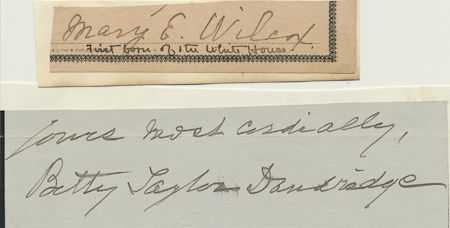 Mary E. Wilcox
First born of the White House
yours most cordially,
Betty Taylor Dandridge